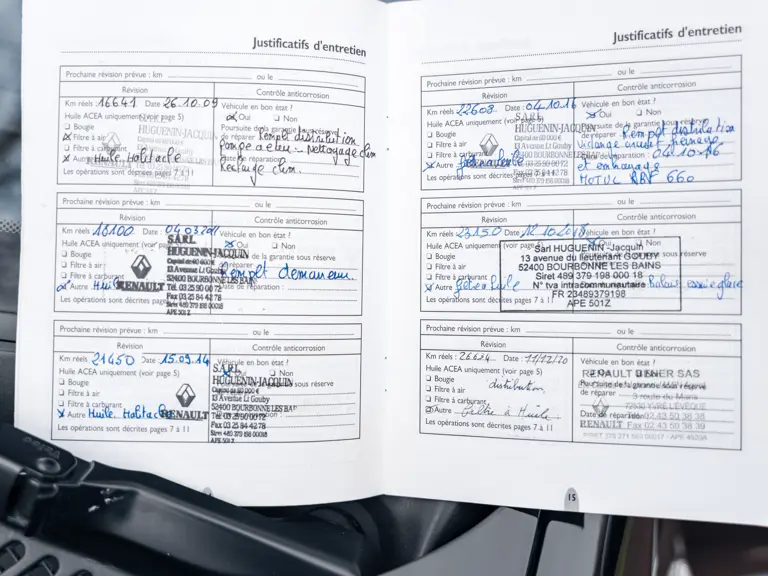 Justificatifs d'entretien
Prochaine révision prévue : km ou le
Révision
Contrôle anticorrosion
Km réels 16641 Date 26.10.09
Véhicule en bon état ?
Huile ACEA uniquement (voir page 5)
Oui Non
Bougie
Poursuite de la garantie sous réserve
Filtre à air
de réparer Remplt distribution
Filtre à carburant
pompe a eau - Nettoyage clim
Autre Huile Habitacle
Date de réparation :
Recharge clim.
Les opérations sont décrites pages 7 à 11
HUGUENIN-JACQUIN
RENAULT
Prochaine révision prévue : km ou le
Révision
Contrôle anticorrosion
Km réels 18100 Date 04 03 2011
Véhicule en bon état ?
Huile ACEA uniquement (voir page 5)
Oui Non
Bougie
de la garantie sous réserve
Filtre à air
Filtre à carburant
Remplt demarreur
Autre
Date de réparation :
Les opérations sont décrites pages 7 à 11
RENAULT
SARL
HUGUENIN-JACQUIN
Capital de 60 000 €
13 Avenue Lt Gouby
52400 BOURBONNE LES BAINS
Tél. 03 25 90 00 72
Fax 03 25 84 42 78
Siret 489 379 198 00018
APE 501Z
Prochaine révision prévue : km ou le
Révision
Contrôle anticorrosion
Km réels 21450 Date 15.09.14
Véhicule en bon état ?
Huile ACEA uniquement (voir page 5)
Oui Non
Bougie
sous réserve
Filtre à air
Filtre à carburant
Autre Huile. Habitacle
Les opérations sont décrites pages 7 à 11
RENAULT
SARL
HUGUENIN-JACQUIN
Capital de 60 000 €
13 Avenue Lt Gouby
52400 BOURBONNE LES BAINS
Tél. 03 25 90 00 72
Fax 03 25 84 42 78
Siret 489 379 198 00018
APE 501Z
Justificatifs d'entretien
Prochaine révision prévue : km ou le
Révision
Contrôle anticorrosion
Km réels 22608 Date 04.10.16
Véhicule en bon état ?
Huile ACEA uniquement (voir page 5)
Oui Non
Bougie
Poursuite de la garantie sous réserve
Filtre à air
de réparer Remplt distribution
Filtre à carburant
Vidange circuit freinage
Autre
04.10.16
et embrayage
Les opérations sont décrites pages 7 à 11
MOTUL RBF 660
HUGUENIN-JACQUIN
52400 BOURBONNE LES BAINS
Prochaine révision prévue : km ou le
Révision
Contrôle anticorrosion
Km réels 23150 Date 12.10.2018
Oui Non
Huile ACEA uniquement (voir page
Bougie
Filtre à air
Filtre à carburant
Autre
Balais essuie glace
Les opérations sont décrites pages 7 à 11
Sarl HUGUENIN - Jacquin
13 avenue du lieutenant GOUBY
52400 BOURBONNE LES BAINS
Siret 489 379 198 000 18
N° tva intracommunautaire
FR 23489379198
APE 501Z
Prochaine révision prévue : km ou le
Révision
Contrôle anticorrosion
Km réels : 26634 Date : 11/12/20
Véhicule en bon état ?
Huile ACEA uniquement (voir page 5)
Bougie
Poursuite de la garantie sous réserve
Filtre à air distribution
de réparer
Filtre à carburant
Autre Filtre à Huile
Date de réparation
Les opérations sont décrites pages 7 à 11
SAS
RENAULT
15